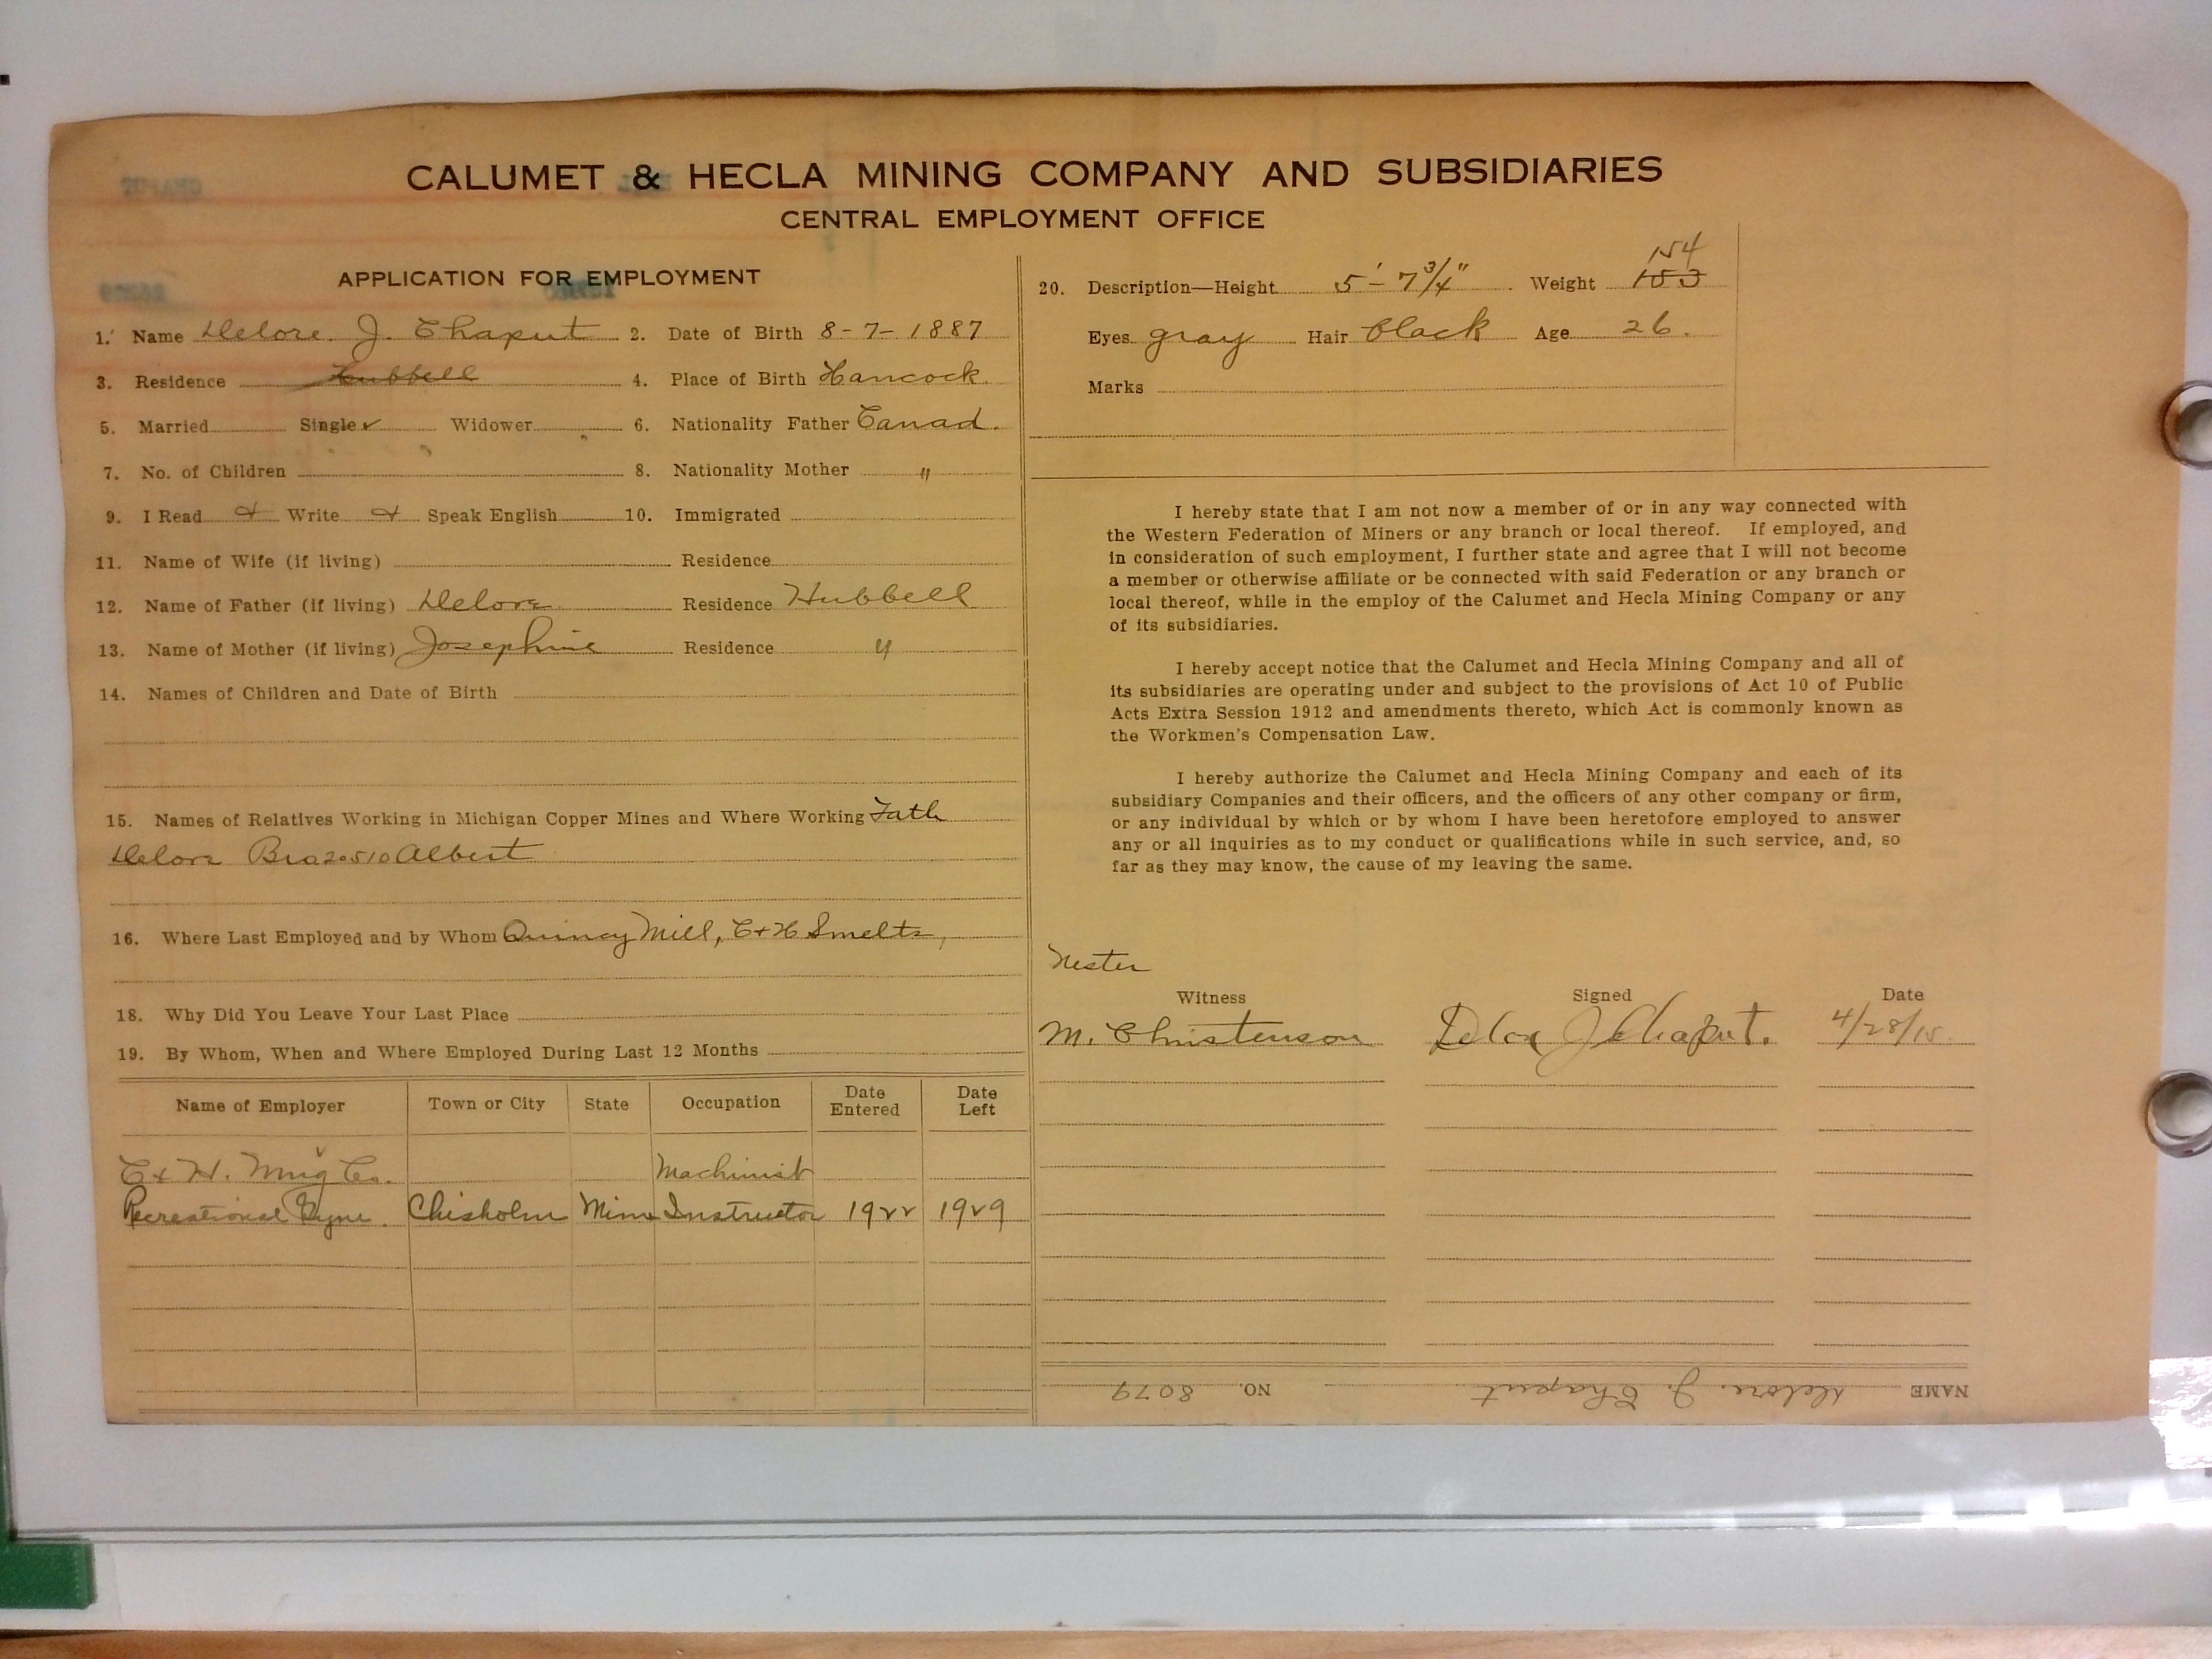 CALUMET & HECLA MINING COMPANY AND SUBSIDIARIES
CENTRAL EMPLOYMENT OFFICE
APPLICATION FOR EMPLOYMENT
1. Name Delore. J. Chaput 2. Date of Birth 8-7-1887
3. Residence Hubbell 4. Place of Birth Hancock.
5. Married Single ✓ Widower 6. Nationality Father Canad.
7. No. of Children 8. Nationality Mother "
9. I Read & Write & Speak English 10. Immigrated
11. Name of Wife (if living) Residence
12. Name of Father (if living) Delore Residence Hubbell
13. Name of Mother (if living) Josephine Residence "
14. Names of Children and Date of Birth
15. Names of Relatives Working in Michigan Copper Mines and Where Working Fath
Delore Bro 20510 Albert
16. Where Last Employed and by Whom Quincy Mill, C+H Smelte,
18. Why Did You Leave Your Last Place
19. By Whom, When and Where Employed During Last 12 Months
Name of Employer Town or City State Occupation Date Entered Date Left
C + H. Mng Co. Machinist
Recreational Gym. Chisholm Minn Instructor 1922 1929
20. Description—Height 5'-7 3/4" Weight 153 154
Eyes gray Hair black Age 26.
Marks
I hereby state that I am not now a member of or in any way connected with
the Western Federation of Miners or any branch or local thereof. If employed, and
in consideration of such employment, I further state and agree that I will not become
a member or otherwise affiliate or be connected with said Federation or any branch or
local thereof, while in the employ of the Calumet and Hecla Mining Company or any
of its subsidiaries.
I hereby accept notice that the Calumet and Hecla Mining Company and all of
its subsidiaries are operating under and subject to the provisions of Act 10 of Public
Acts Extra Session 1912 and amendments thereto, which Act is commonly known as
the Workmen's Compensation Law.
I hereby authorize the Calumet and Hecla Mining Company and each of its
subsidiary Companies and their officers, and the officers of any other company or firm,
or any individual by which or by whom I have been heretofore employed to answer
any or all inquiries as to my conduct or qualifications while in such service, and, so
far as they may know, the cause of my leaving the same.
Nester
Witness Signed Date
M. Christenson Delor J Chaput. 4/28/15.
NAME Delore. J. Chaput NO. 8079